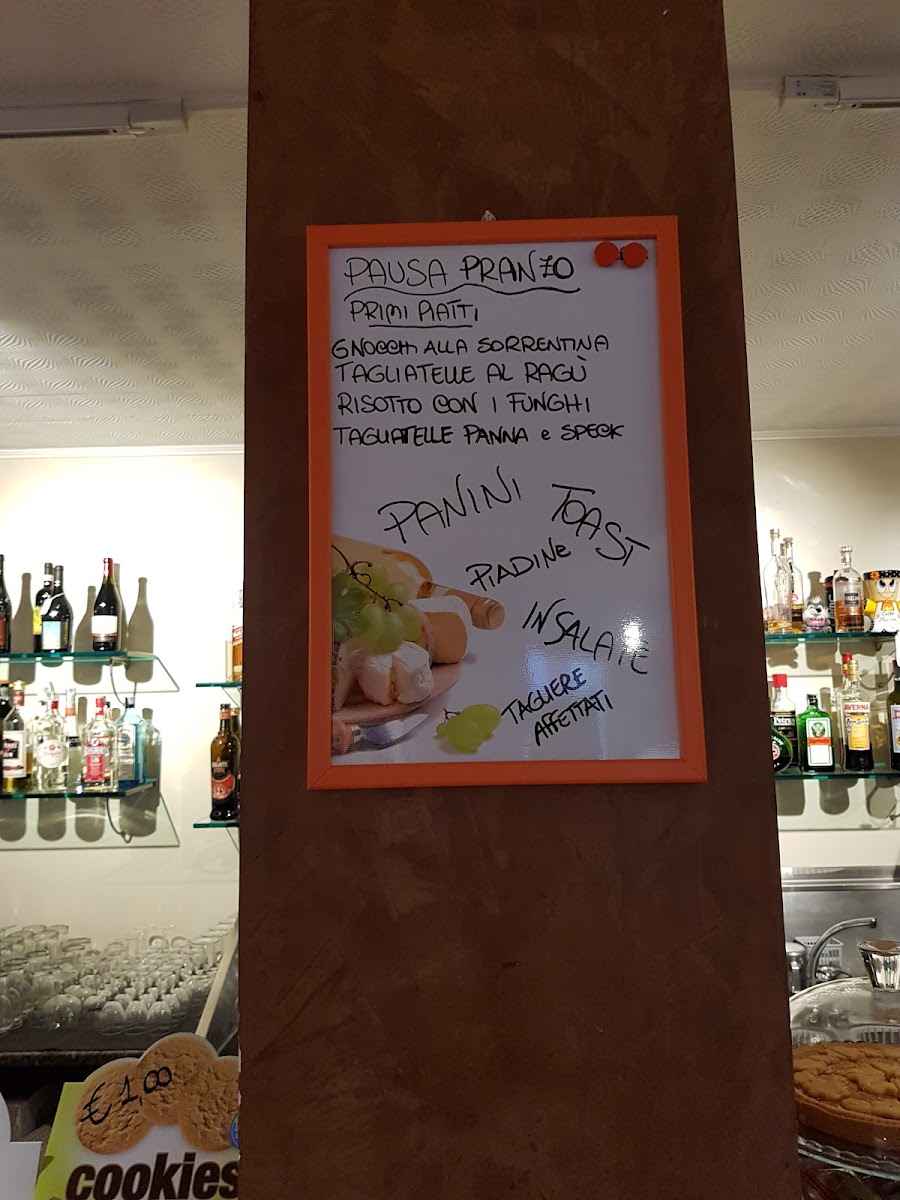 PAUSA PRANZO
PRIMI PIATTI
GNOCCHI ALLA SORRENTINA
TAGLIATELLE AL RAGÙ
RISOTTO CON I FUNGHI
TAGLIATELLE PANNA e SPECK
PANINI
TOAST
PIADINE
INSALATE
TAGLIERE
AFFETTATI
AVERNA
€ 1,00
cookies